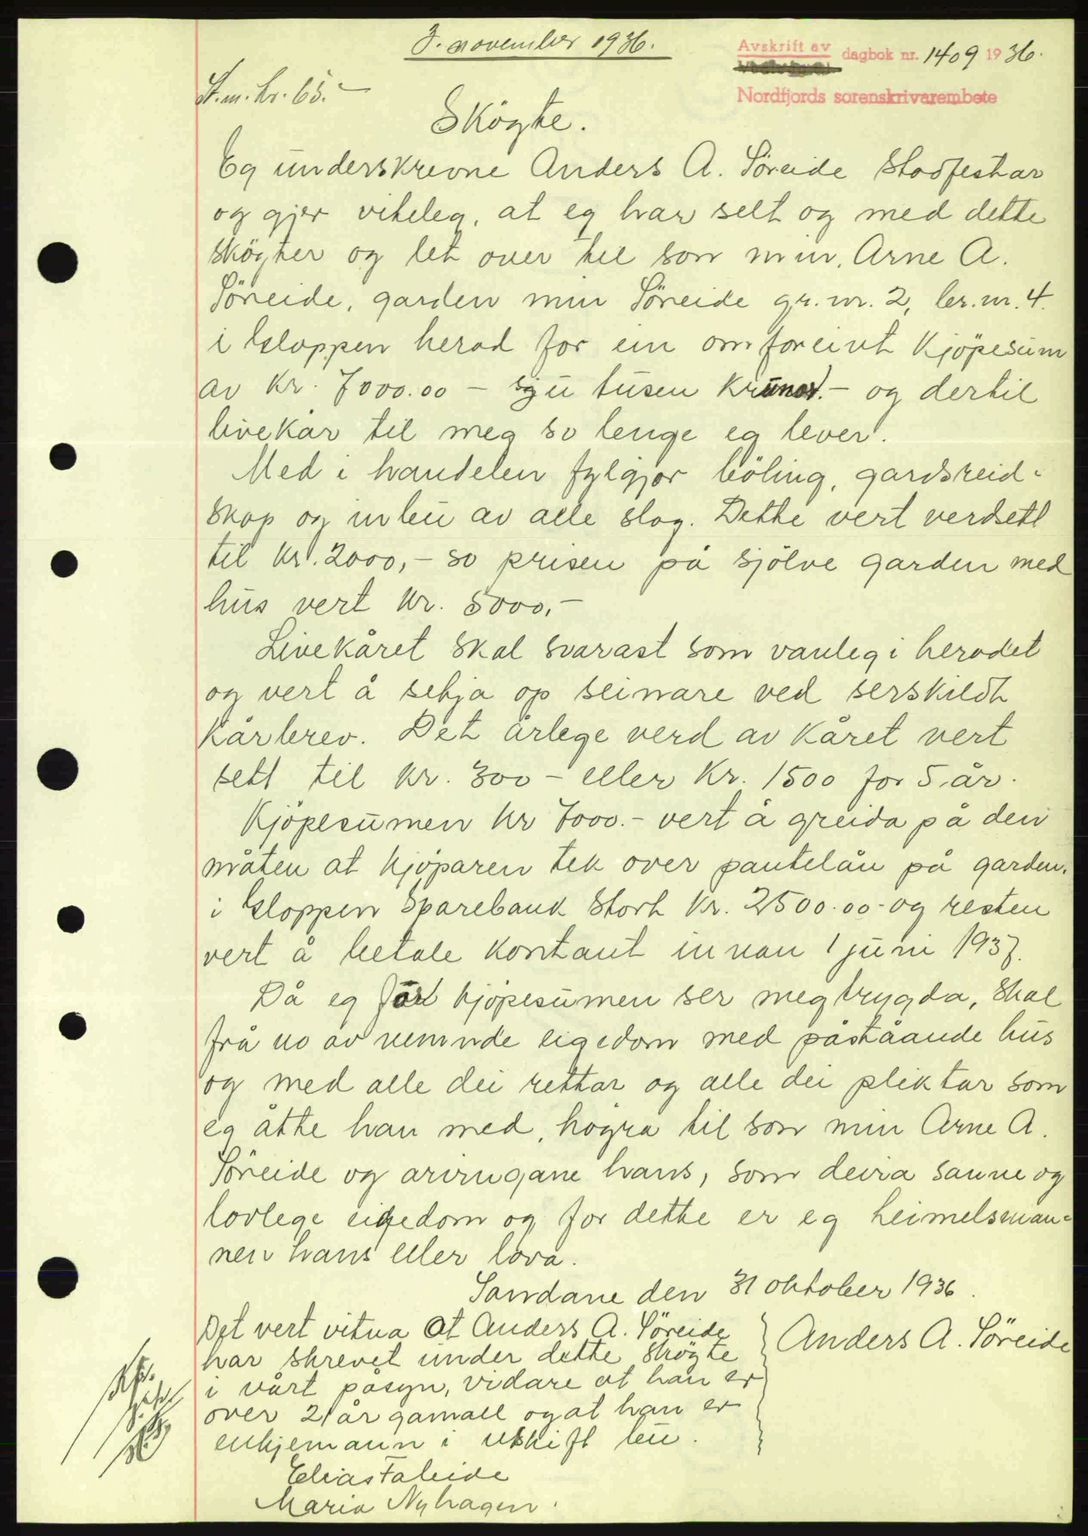 3. november 1936.
Avskrift av dagbok nr. 1409 1936.
Nordfjords sorenskrivarembete
St.m. kr. 65.-
Skøgte.
Eg underskrevne Anders A. Søreide stadfestar
og gjer viteleg, at eg har selt og med dette
skøgter og let over til son min, Arne A.
Søreide, garden min Søreide gr.nr. 2, br.nr. 4.
i Gloppen herad for ein omforeint kjøpesum
av kr. 7000.00 - sju tusen krunor.- og dertil
livekår til meg so lenge eg lever.
Med i handelen fylgjer bøling, gardsreid-
skap og inbu av alle slag. Dette vert verdsett
til kr. 2000,- so prisen på sjølve garden med
hus vert kr. 5000,-
Livekåret skal svarast som vanleg i heradet
og vert å setja op seinare ved serskildt
kårbrev. Det årlege verd av kåret vert
sett til kr. 300 - eller kr. 1500 for 5 år.
Kjøpesumen kr 7000.- vert å greida på den
måten at kjøparen tek over pantelån på garden.
i Gloppen Sparebank stort kr. 2500.00- og resten
vert å betale kontant innan 1 juni 1937.
Då eg for kjøpesumen ser meg trygda, skal
frå no av nemnde eigedom med påståande hus
og med alle dei rettar og alle dei pliktar som
eg åtte han med, høyra til son min Arne A.
Søreide og arvingane hans, som deira sanne og
lovlege eigedom og for dette er eg heimelsman-
nen hans etter lova.
Sandane den 31 oktober 1936.
Anders A. Søreide
Det vert vitna at Anders A. Søreide
har skrevet under dette skøgte
i vårt påsyn, vidare at han er
over 21 år gamall og at han er
enkjemann i uskift bu.
Elias Faleide
Maria Nyhagen.